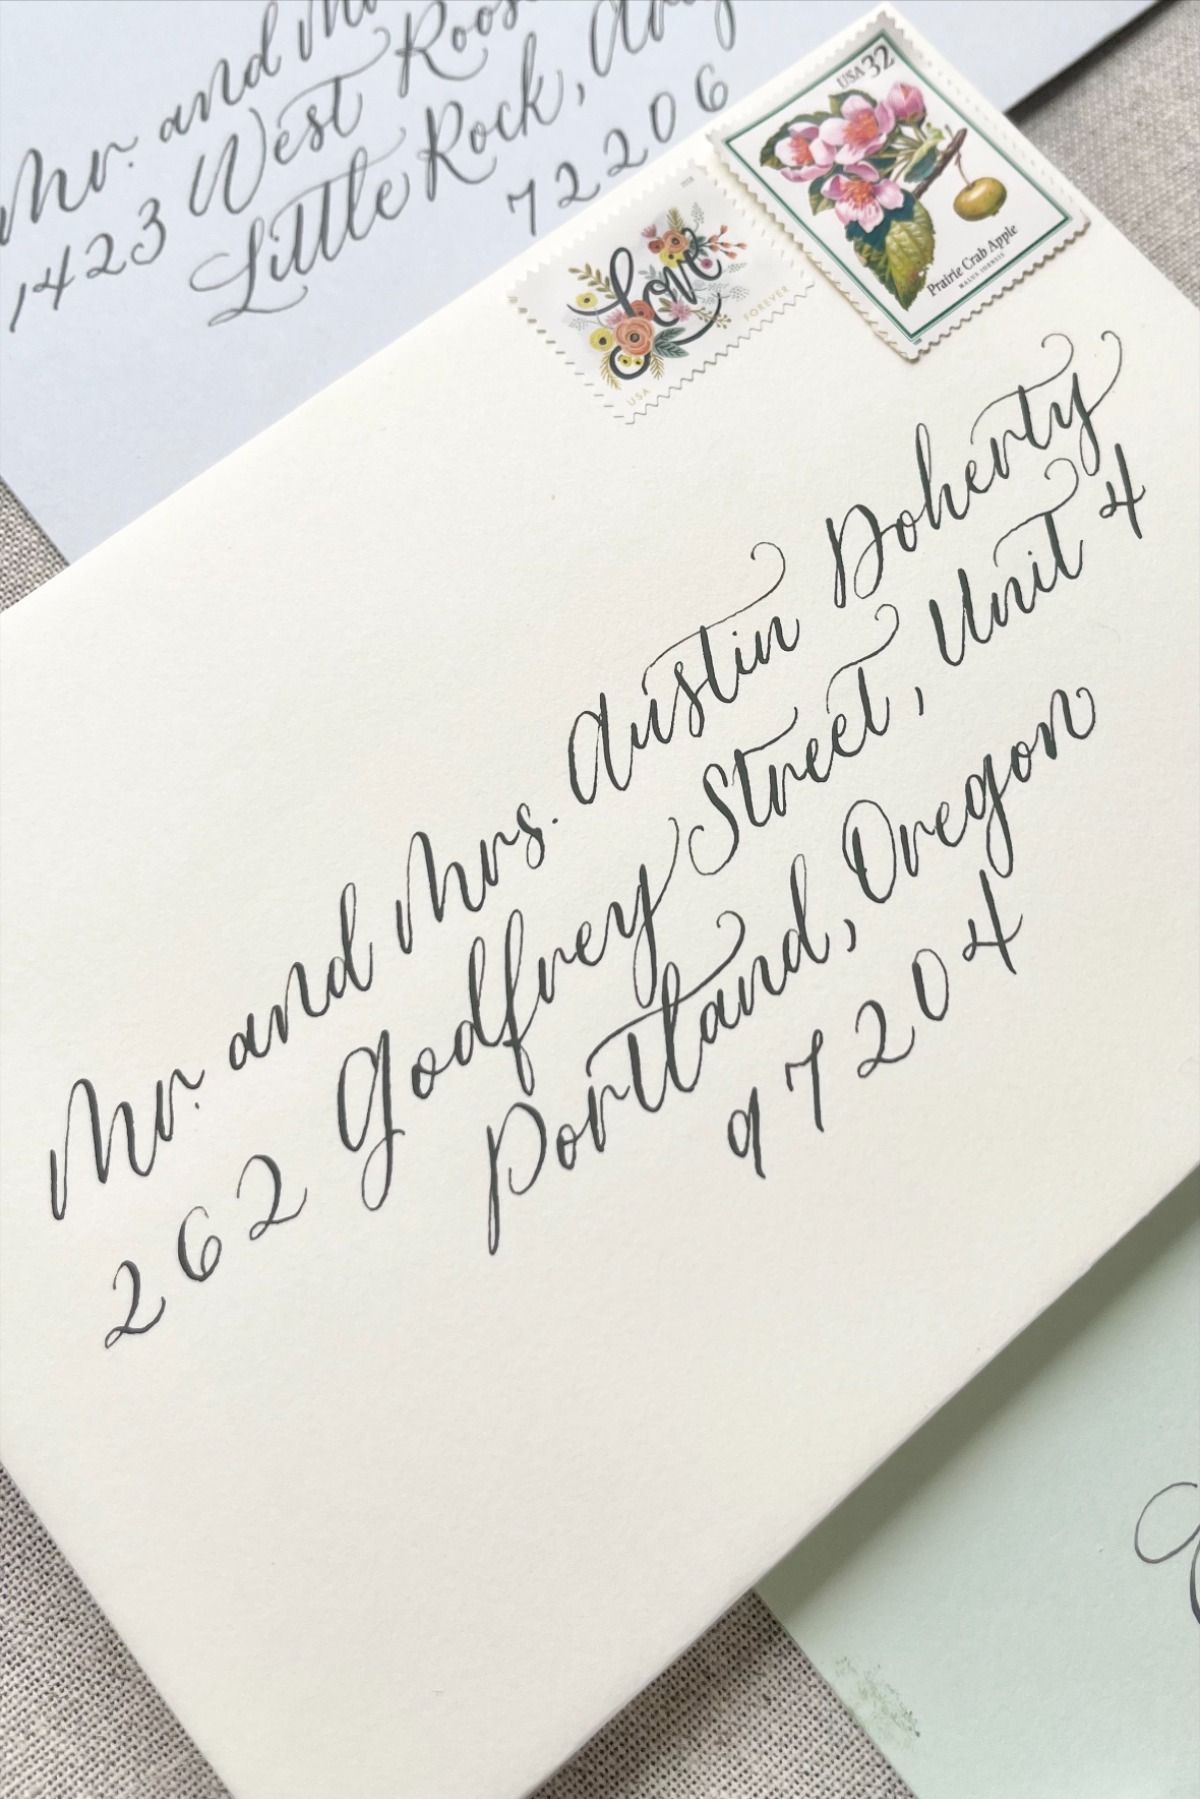 Mr. and
1423 West
Little Rock,
72206
USA 32
Prairie Crab Apple
MALUS IOENSIS
2018
Love
FOREVER
USA
Mr. and Mrs. Austin Doherty
262 Godfrey Street, Unit 4
Portland, Oregon
97204